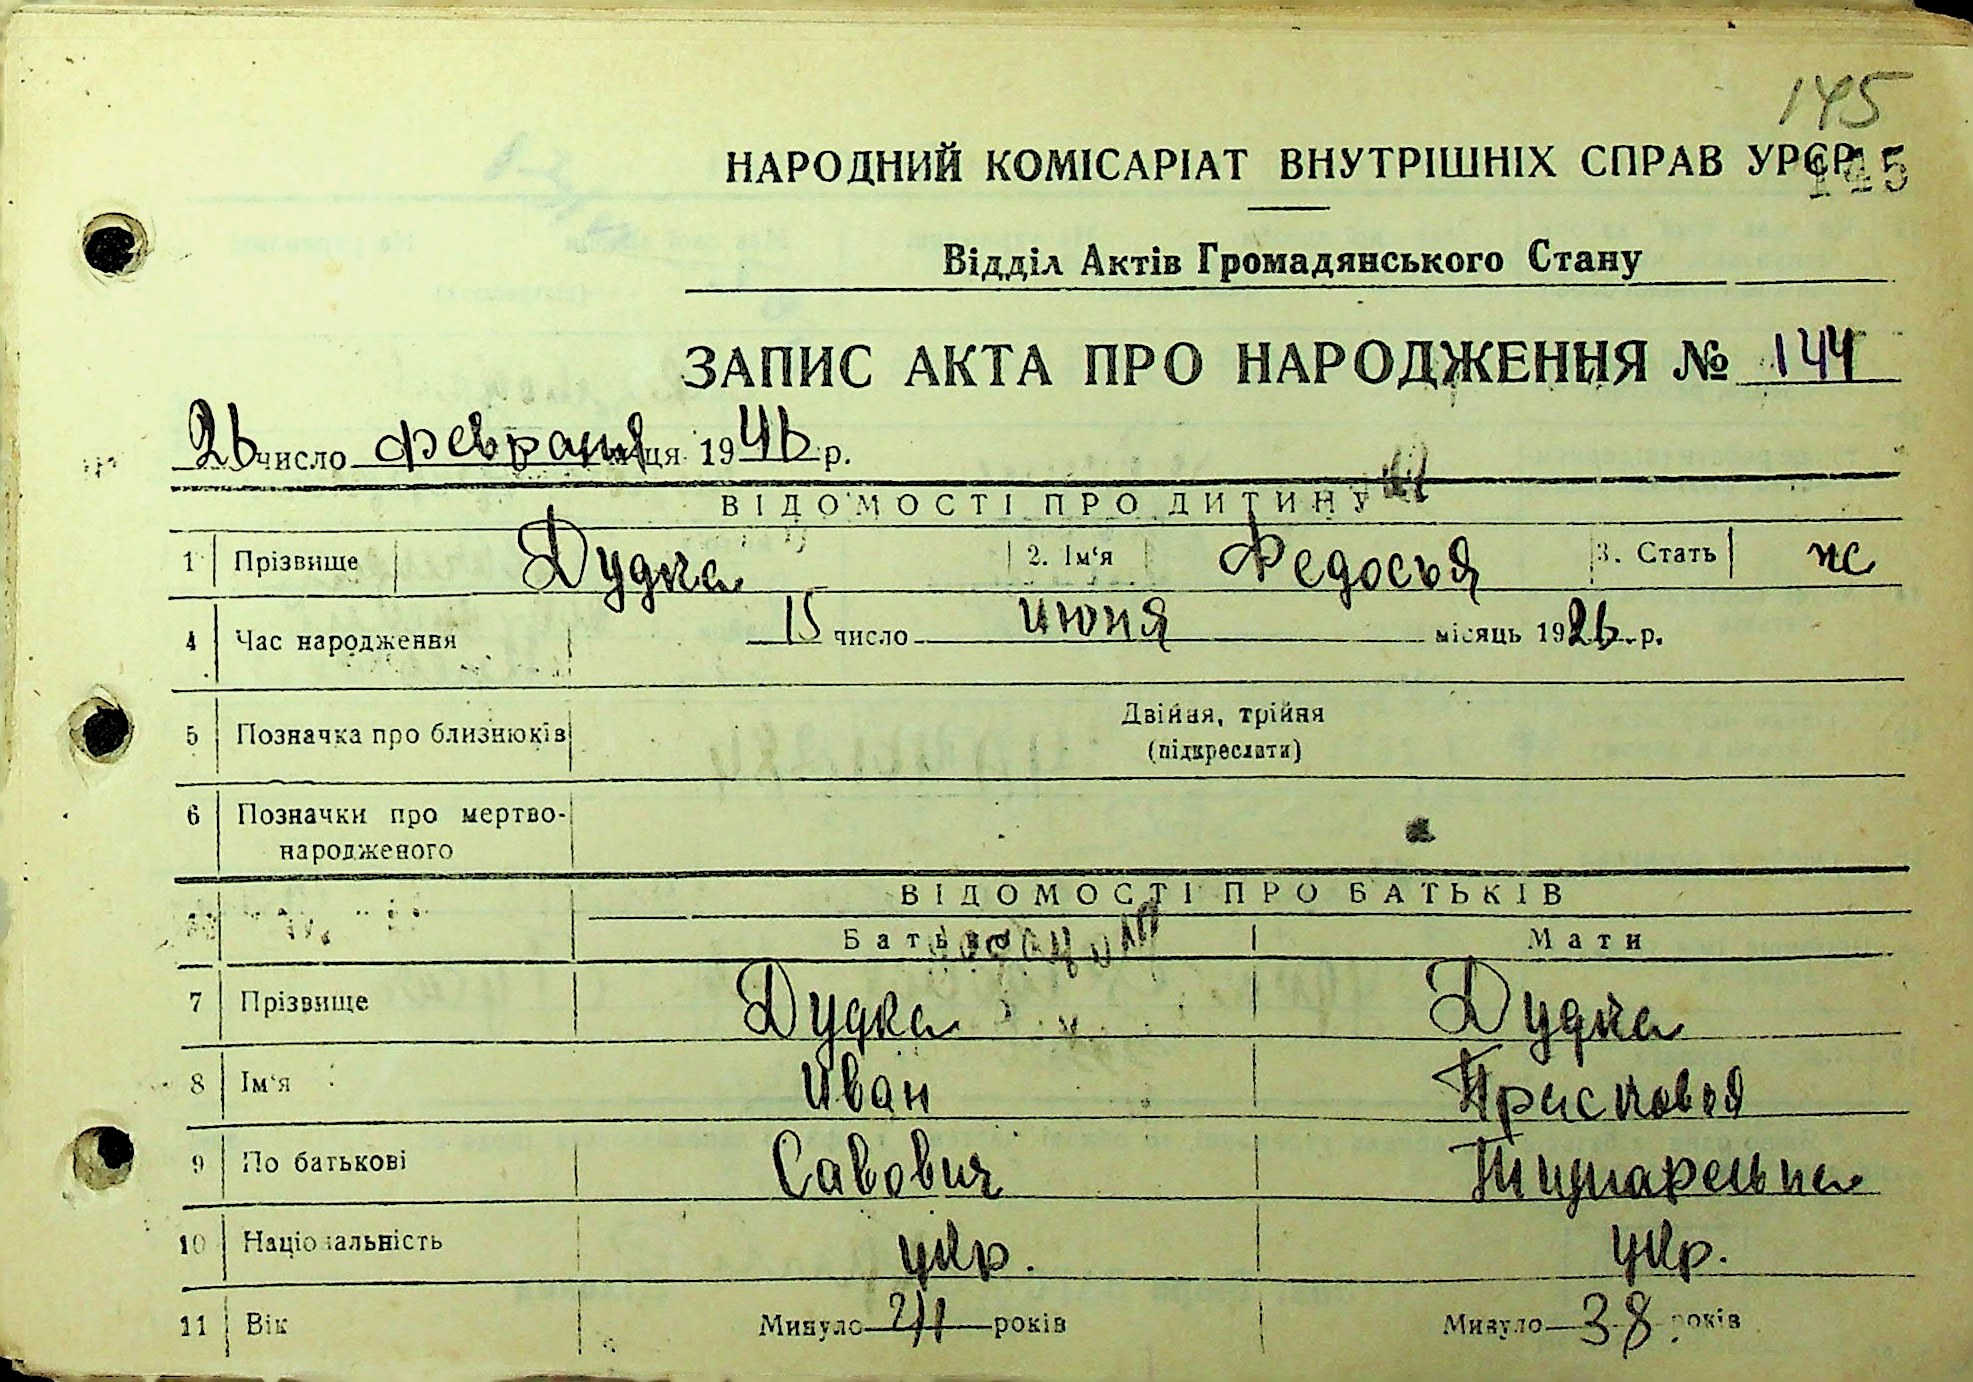 145
НАРОДНИЙ КОМІСАРІАТ ВНУТРІШНІХ СПРАВ УРСР
145
Відділ Актів Громадянського Стану
ЗАПИС АКТА ПРО НАРОДЖЕННЯ № 144
26 число февраля місяця 1946 р.
ВІДОМОСТІ ПРО ДИТИНУ
1 Прізвище Дудка 2. Ім‘я Федосья 3. Стать ж
4 Час народження 15 число июня місяць 1926 р.
5 Позначка про близнюків Двійня, трійня
(підкреслити)
6 Позначки про мертво-
народженого
ВІДОМОСТІ ПРО БАТЬКІВ
Батько Мати
7 Прізвище Дудка Дудка
8 Ім‘я Иван Прасковья
9 По батькові Савович
10 Національність укр. укр.
11 Вік Минуло років Минуло 38 років